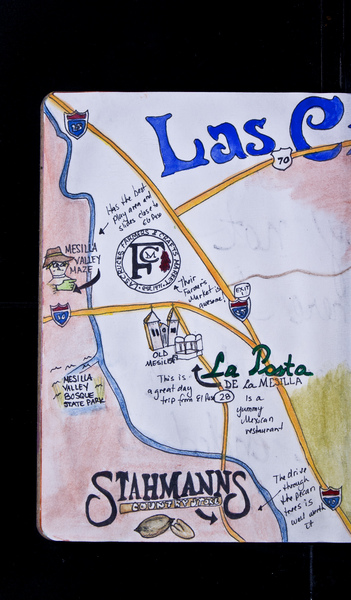 Las C
70
Has the best
play area and
slides close to
El Paso
MESILLA
VALLEY
MAZE
LAS CRUCES FARMERS & CRAFTS MARKET
Their
Farmer's
Market is
awesome!
10
OLD
MESILLA
La Posta
DE La MESILLA
This is
a great day
trip from El Paso
28
Is a
yummy
Mexican
restaurant
MESILLA
VALLEY
BOSQUE
STATE PARK
STAHMANNS
COUNTRY STORE
The drive
through
the pecan
trees is
well worth
it